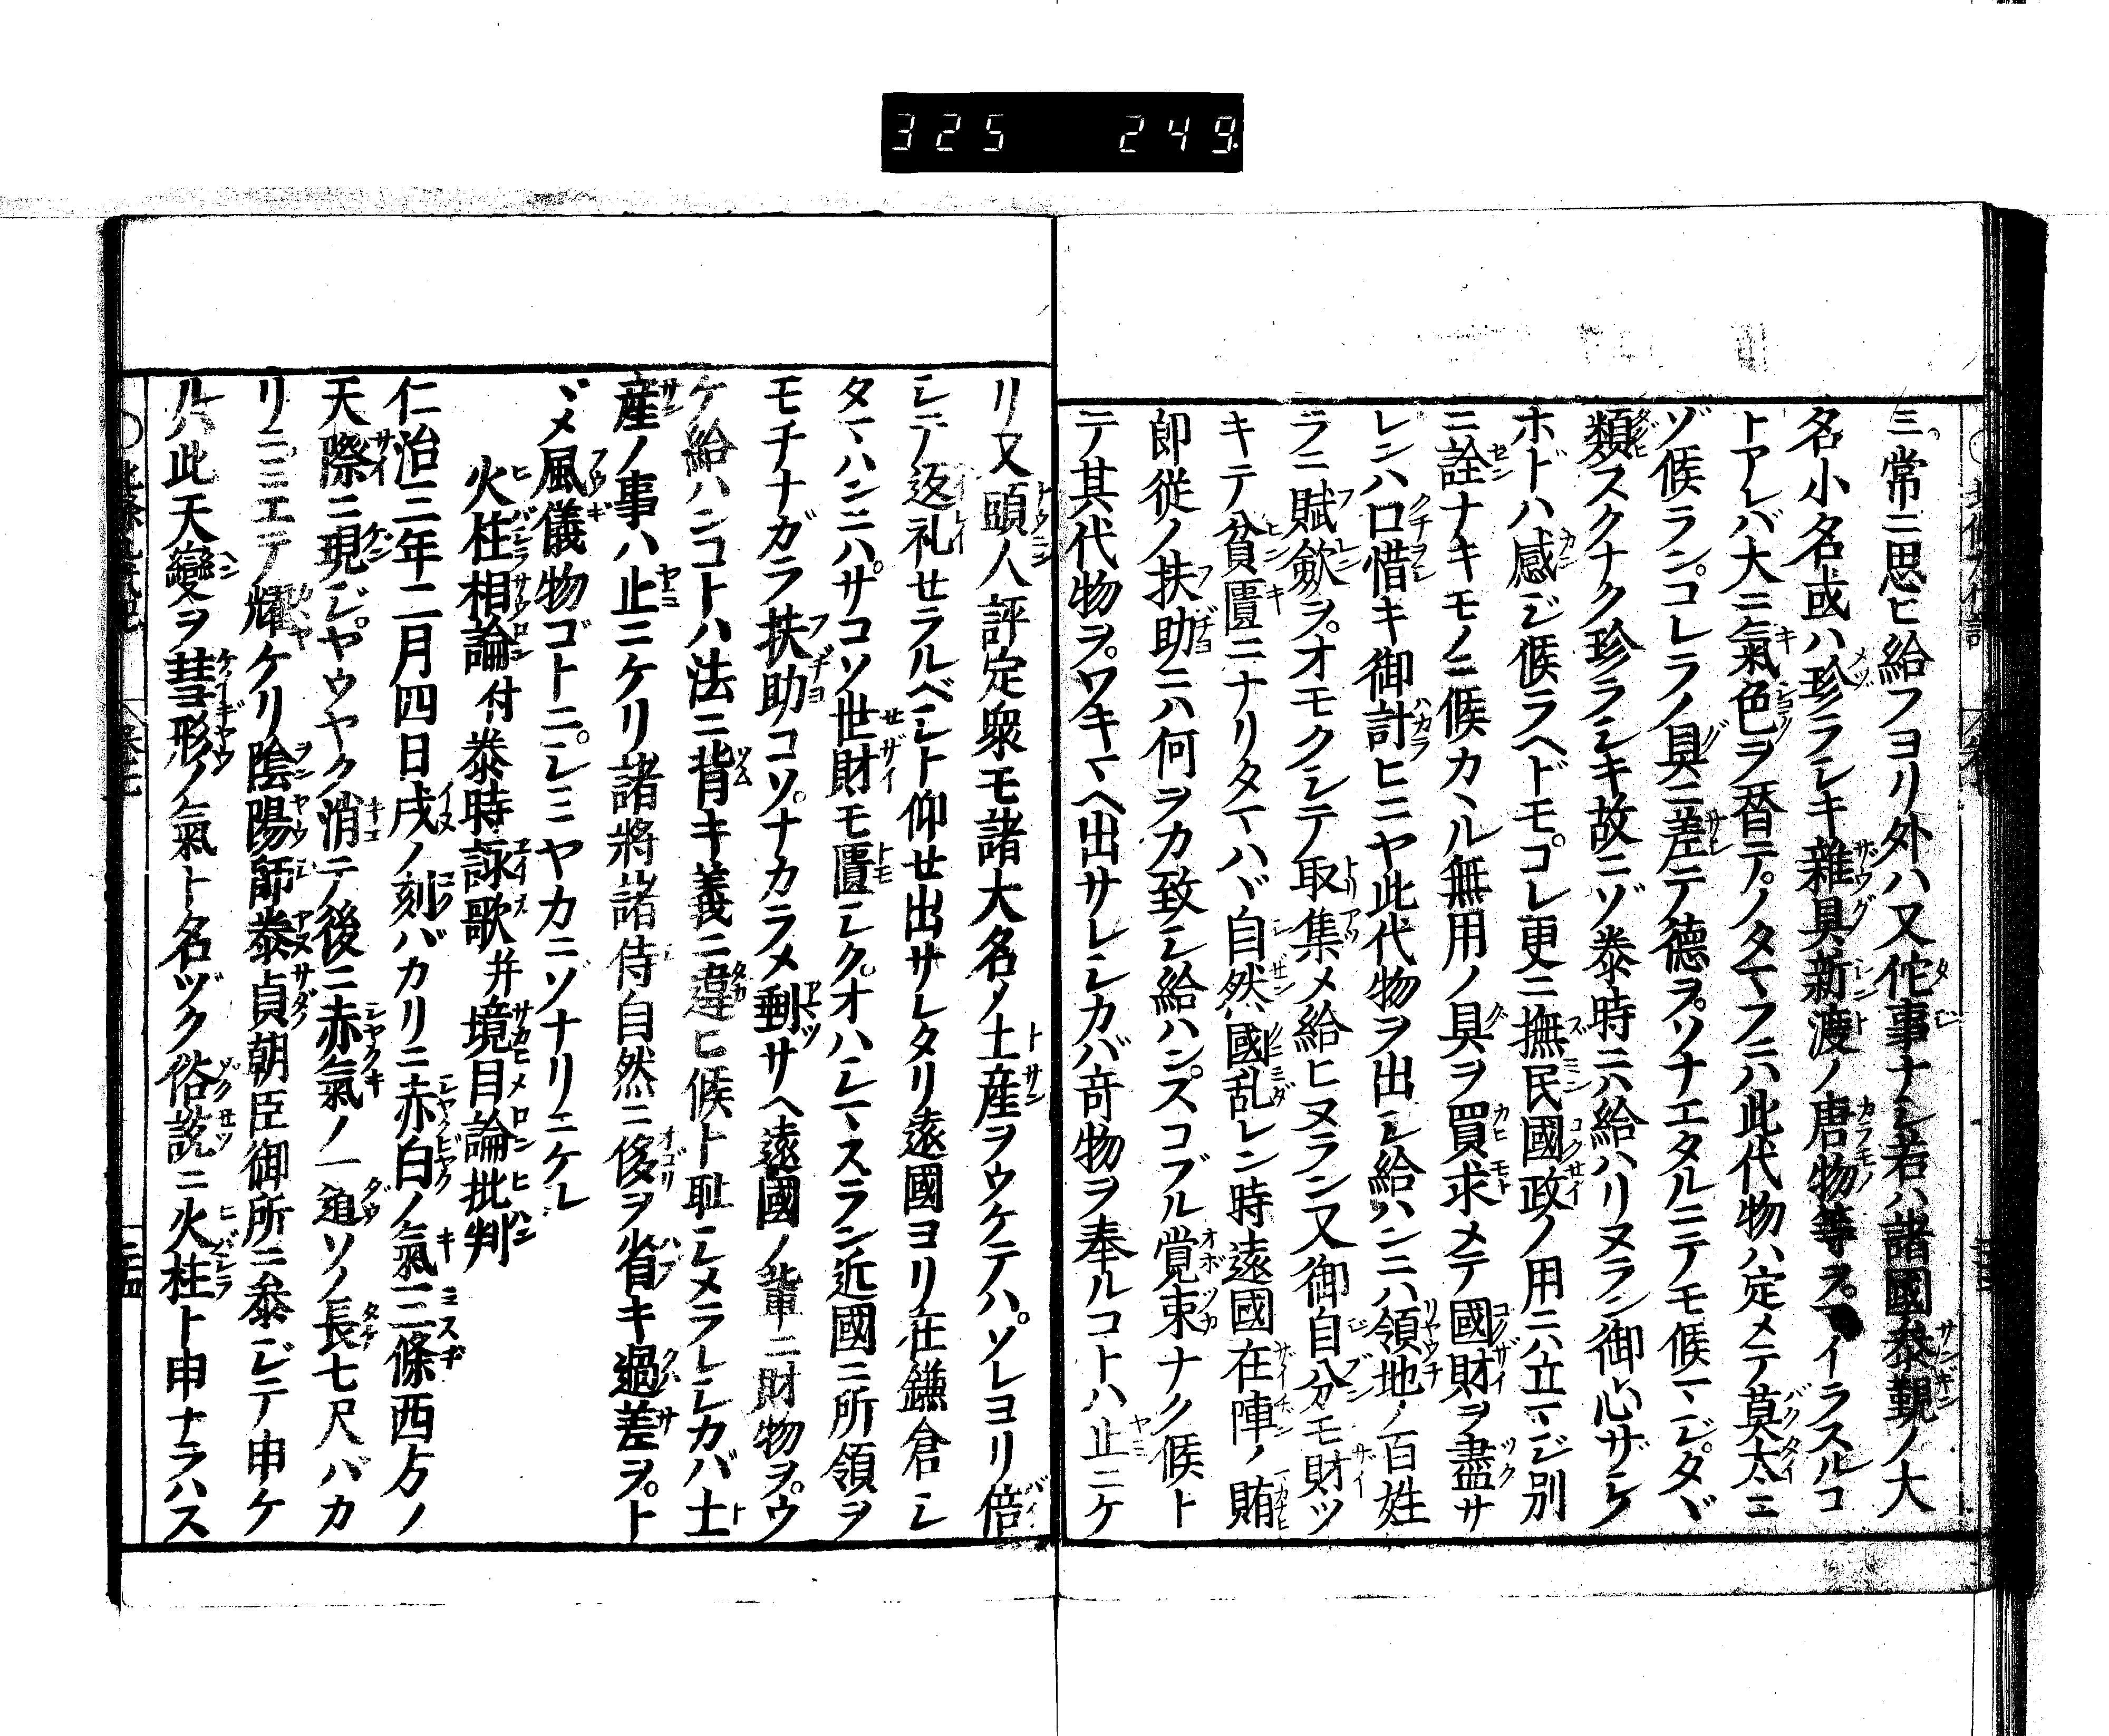 325 249
ミ。常ニ思ヒ給フヨリ外ハ又佗事ナシ若ハ諸國参覲ノ大
名小名或ハ珍ラシキ雜具、新渡ノ唐物等ヲ。マイラスルコ
トアレバ大ニ氣色ヲ替テ。ノタマフニハ此代物ハ定メテ莫太ニ
ゾ候ラン。コレラノ具ニ差テ德ヲ。ソナエタルニテモ候マジ。タヾ
類スクナク珍ラシキ故ニゾ泰時ニハ給ハリヌラン御心ザシケ
ホドハ感ジ候ラヘドモ。コレ更ニ撫民國政ノ用ニハ立マジ別
ニ詮ナキモノニ候カヽル無用ノ具ヲ買求メテ國財ヲ盡サ
レンハ口惜キ御計ヒニヤ此代物ヲ出シ給ハンニハ領地ノ百姓
ラニ賦歛ヲ。オモクシテ取集メ給ヒヌラン又御自分モ財ツ
キテ貧匱ニナリタマハヾ自然ハ國乱レン時遠國在陣ノ賄
郎從ノ扶助ニハ何ヲカ致シ給ハン。スコブル覚束ナク候ト
テ其代物ヲ。ワキマヘ出サレシカバ竒物ヲ奉ルコトハ止ニケ
リ又頭人評定衆モ諸大名ノ土産ヲウケテハ。ソレヨリ倍
シテノ返礼セラルベシト仰セ出サレタリ遠國ヨリ在鎌倉シ
タマハンニハ。サコソ世財モ匱シク。オハシマスラン近國ニ所領ヲ
モチナガラ扶助コソ。ナカラメ剰サヘ遠國ノ輩ニ財物ヲ。ウ
ケ給ハンコトハ法ニ背キ義ニ違ヒ候ト耻シメラレシカバ土
産ノ事ハ止ニケリ諸將諸侍自然ニ侈ヲ省キ過差ヲ。ト
ヾメ風儀物ゴトニ。シミヤカニゾナリニケレ
火柱相論 付 泰時詠歌 并 境目論批判
仁治三年二月四日戌ノ刻バカリニ赤白ノ氣三條西方ノ
天際ニ現ジ。ヤウヤク消テ後ニ赤氣ノ一道ソノ長七尺バカ
リニミエテ耀ケリ陰陽師泰貞朝臣御所ニ参ジテ申ケ
ルハ此天變ヲ彗形ノ氣ト名ヅク俗説ニ火柱ト申ナラハス